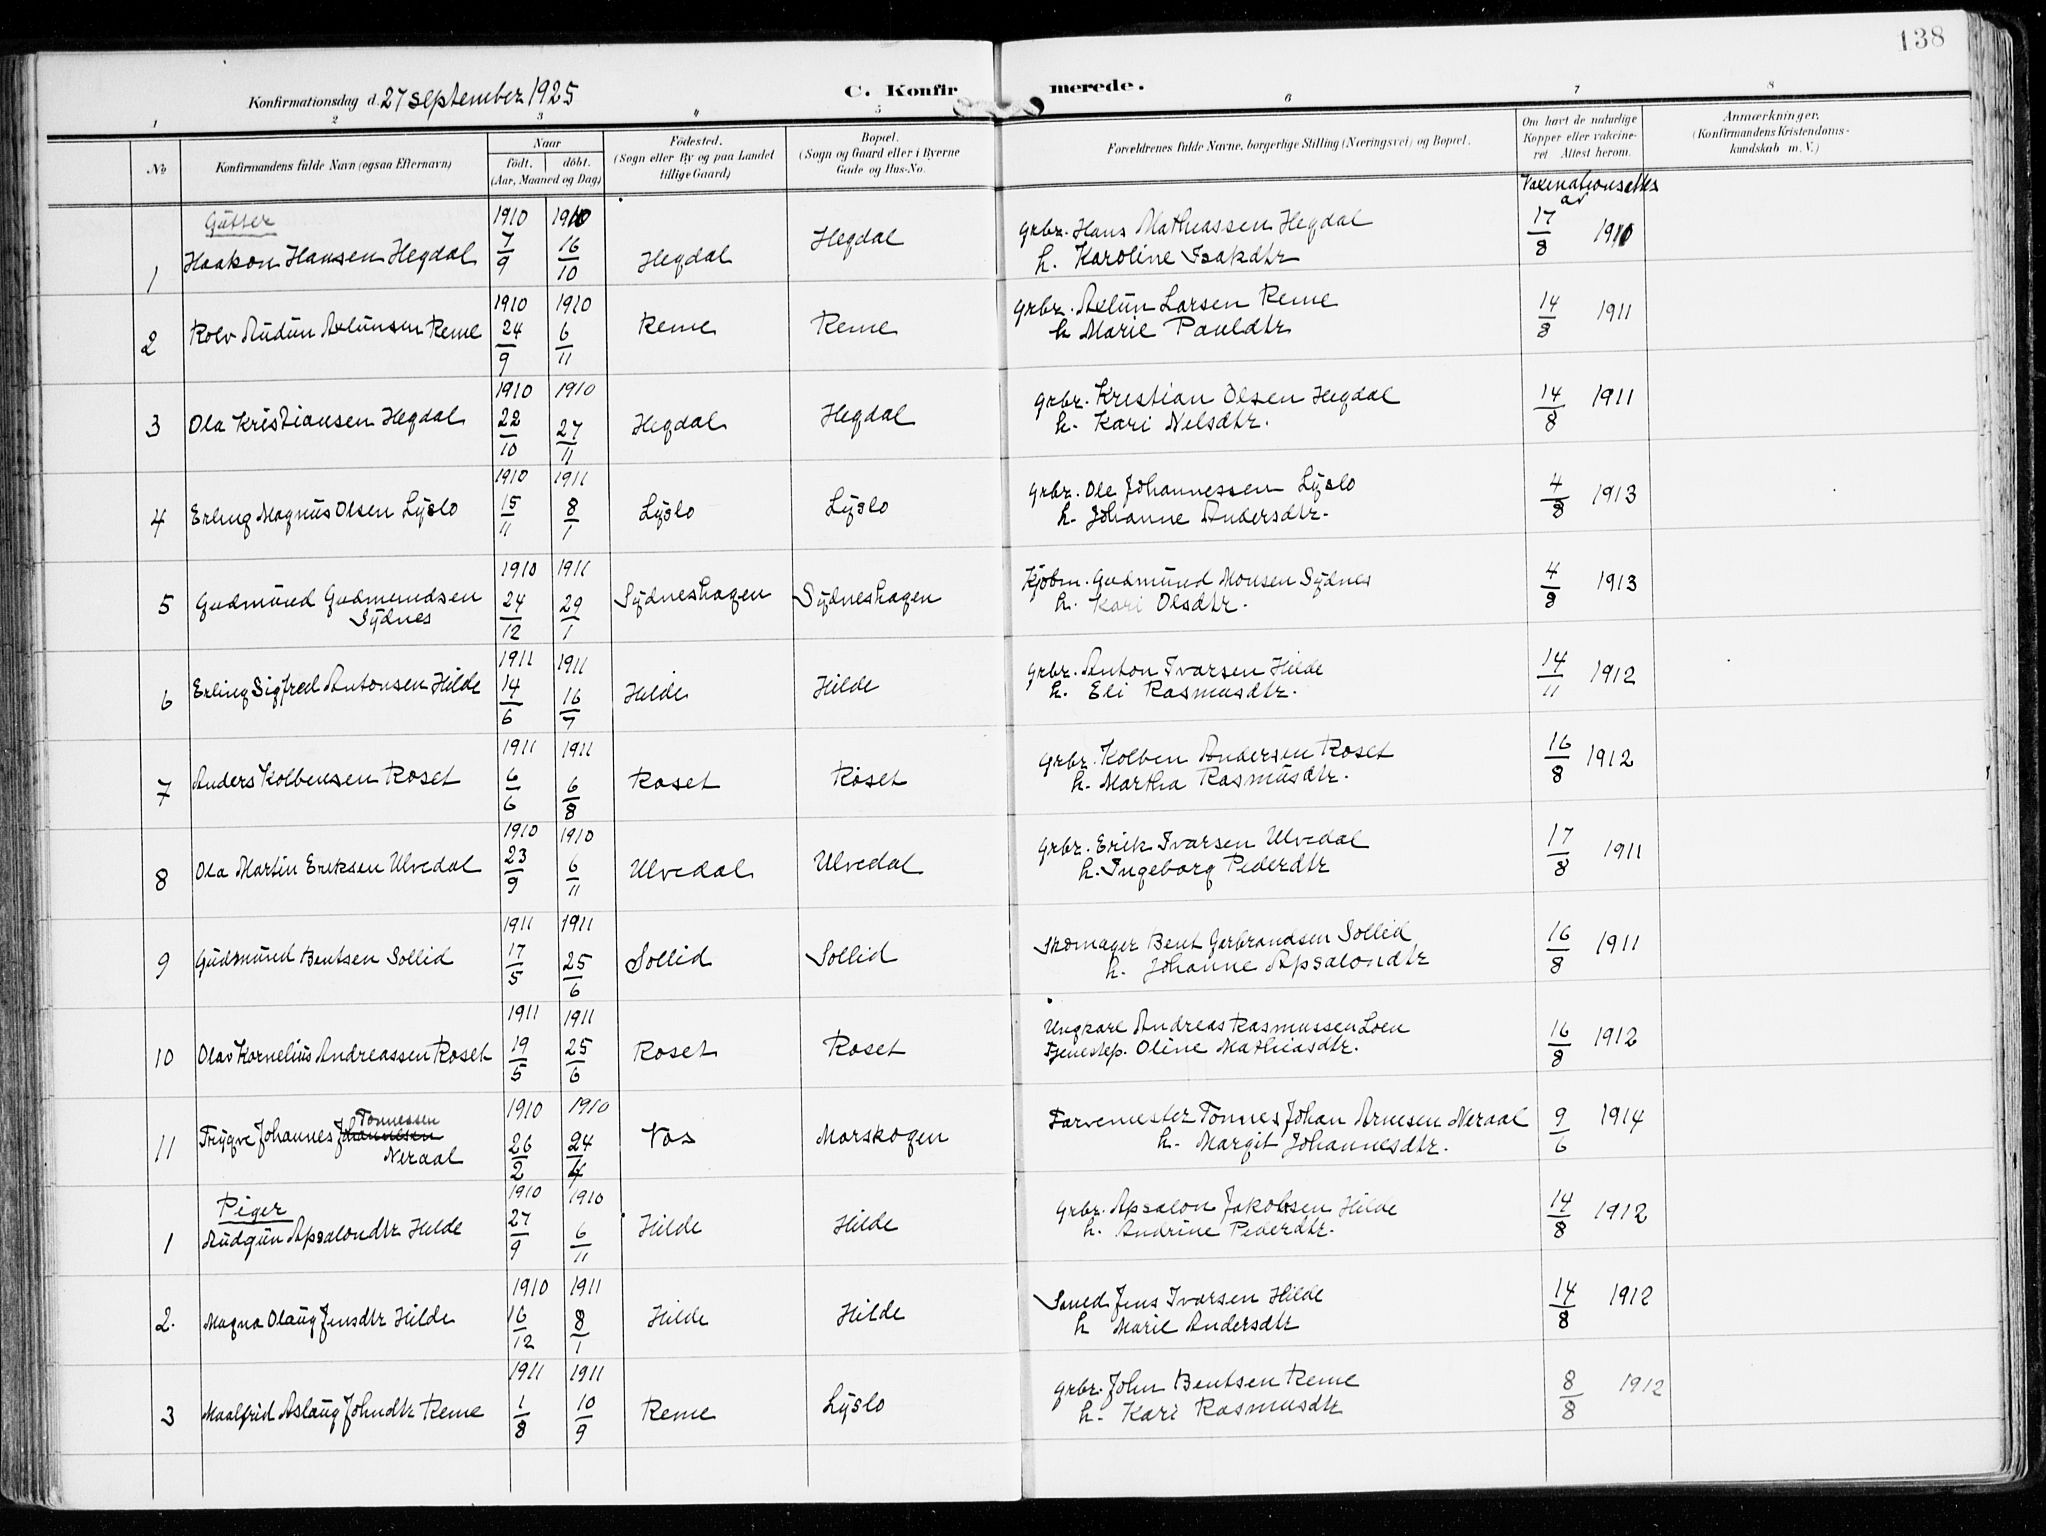 138
Konfirmationsdag d. 27 september 1925
C. Konfirmerede.
1 2 3 4 5 6 7 8
No
Konfirmandens fulde Navn (ogsaa Efternavn)
Naar
födt. döbt.
(Aar, Maaned og Dag)
Födested.
(Sogn eller By og paa Landet
tillige Gaard)
Bopæl.
(Sogn og Gaard eller i Byerne
Gade og Hus-No.
Forældrenes fulde Navne, borgerlige Stilling (Næringsvei) og Bopæl.
Om havt de naturlige
Kopper eller vakcine-
ret Attest herom.
Anmærkninger,
(Konfirmandens Kristendoms-
kundskab m. V.)
av
Gutter
1 Haakon Hansen Hegdal 1910 7/9 1910 16/10 Hegdal Hegdal grbr. Hans Mathiassen Hegdal 17/8 1910
h. Karoline Isakdtr
2 Rolv Audun Aslunsen Reme 1910 24/9 1910 6/11 Reme Reme grbr. Larsen Reme 14/8 1911
h Marie Pauldtr
3 Ola Kristiansen Hegdal 1910 22/10 1910 27/11 Hegdal Hegdal grbr. Kristian Olsen Hegdal 14/8 1911
h. Kari Nelsdtr.
4 Erling Magnus Olsen Lyslo 1910 15/11 1911 8/1 Lyslo Lyslo grbr. Ole Johannessen Lyslo 4/8 1913
h. Johanne Andersdtr.
5 Gudmund Gudmundsen 1910 24/12 1911 29/1 Sydneshagen Sydneshagen Kjøbm. Gudmund Monsen Sydnes 4/8 1913
Sydnes h. Kari Olsdtr.
6 Erling Sigfred Antonsen Hilde 1911 14/6 1911 16/7 Hilde Hilde grbr. Anton Ivarsen Hilde 14/11 1912
h. Eli Rasmusdtr.
7 Anders Kolbensen Roset 1911 6/6 1911 6/8 Roset Roset grbr. Kolben Andersen Roset 16/8 1912
h. Martha Rasmusdtr.
8 Ola Martin Eriksen Ulvedal 1910 23/9 1910 6/11 Ulvedal Ulvedal grbr. Erik Ivarsen Ulvedal 17/8 1911
h. Ingeborg Pederdtr
9 Gudmund Bentsen Sollid 1911 17/5 1911 25/6 Sollid Sollid Skomager Bent Gerbrandsen Sollid 16/8 1911
h. Johanne Apsalondtr
10 Olav Kornelius Andreassen Roset 1911 19/5 1911 25/6 Roset Roset Ungkarl Andreas Rasmussen Loen 16/8 1912
Tjenestep. Oline Mathiasdtr.
11 Trygve Johannes Johannesen Tonnessen 1910 26/2 1910 24/4 Vos Morskogen Farvemester Tonnes Johan Arnesen Neraal 9/6 1914
Neraal h. Margit Johannesdtr.
Piger
1 Audgun Apsalondtr Hilde 1910 27/9 1910 6/11 Hilde Hilde grbr. Apsalon Jakobsen Hilde 14/8 1912
h. Andrine Pederdtr.
2. Magna Olaug Jensdtr Hilde 1910 16/12 1911 8/1 Hilde Hilde Smed Jens Ivarsen Hilde 14/8 1912
h Marie Andersdtr
3 Maalfrid Aslaug Johndtr Reme 1911 1/8 1911 10/9 Reme Lyslo grbr. John Bentsen Reme 8/8 1912
h. Kari Rasmusdtr